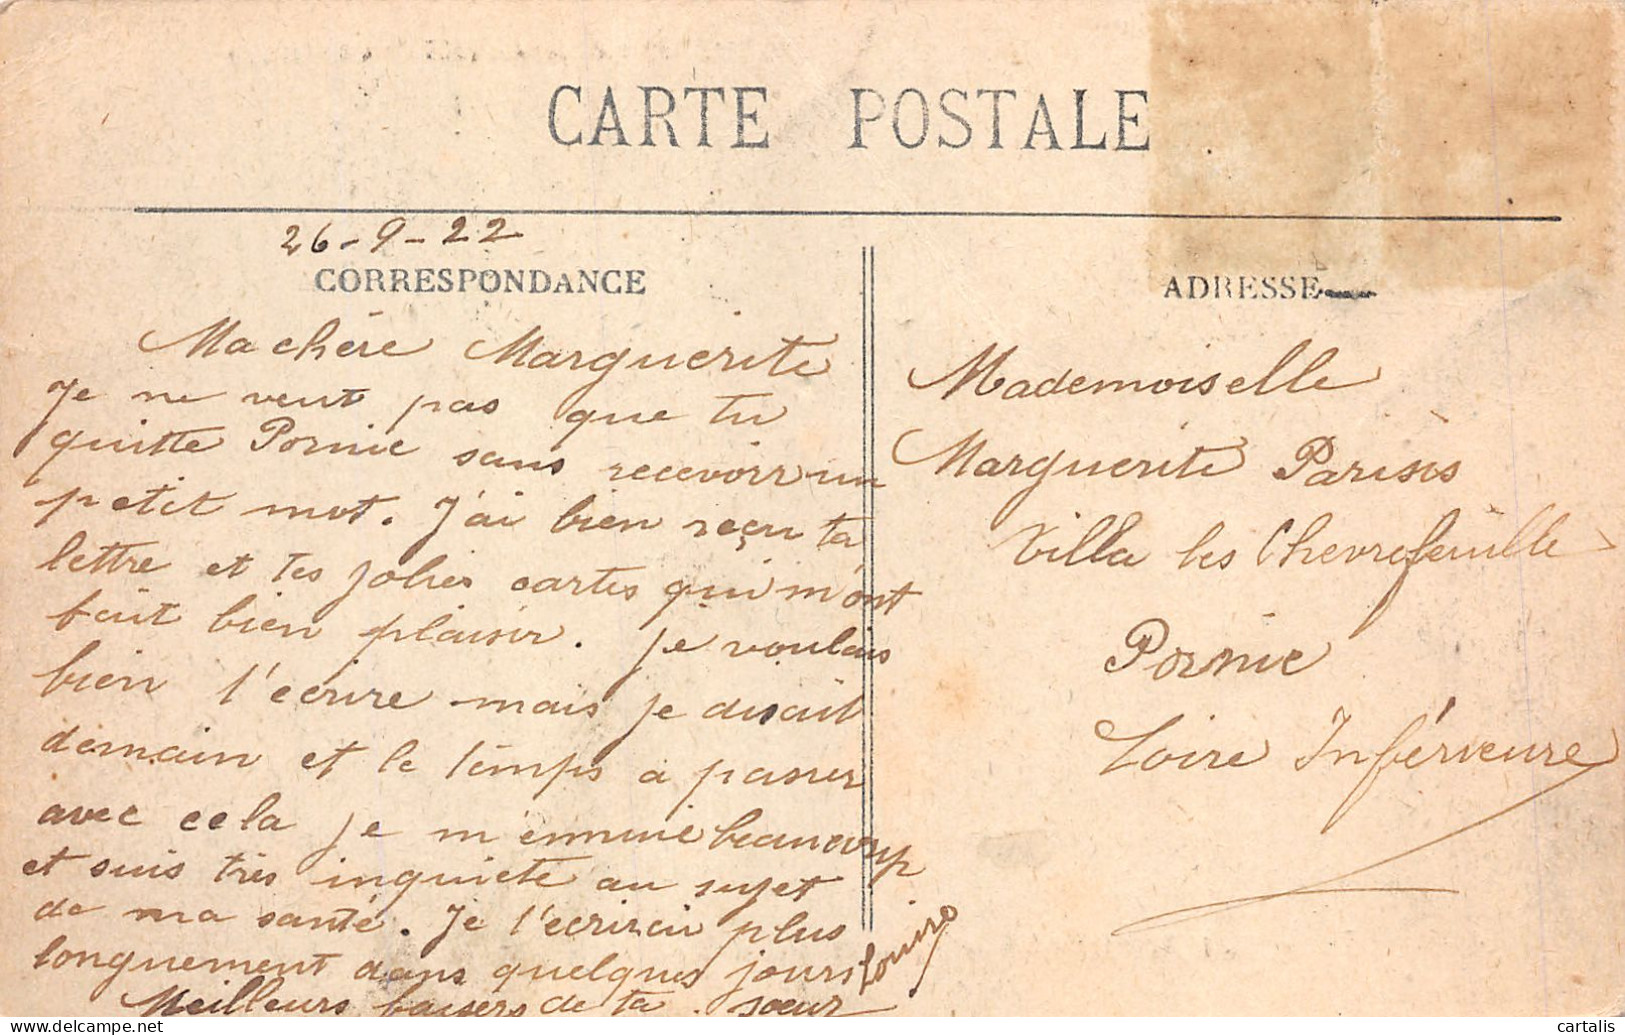 CARTE POSTALE
26-9-22
CORRESPONDANCE
Ma chère Marguerite
Je ne veut pas que tu
quitte Pornic sans recevoir un
petit mot. J'ai bien reçu ta
lettre et tes jolies cartes qui m'ont
fait bien plaisir. je voulais
bien t'ecrire mais je disait
demain et le temps a passer
avec cela je m'ennuie beaucoup
et suis très inquiete au sujet
de ma santé. Je t'ecrirai plus
longuement dans quelques jours
Meilleurs baisers de ta sœur
ADRESSE
Mademoiselle
Marguerite Parisis
Villa les Chevrefeuille
Pornic
Loire Inférieure
cartalis
delcampe.net